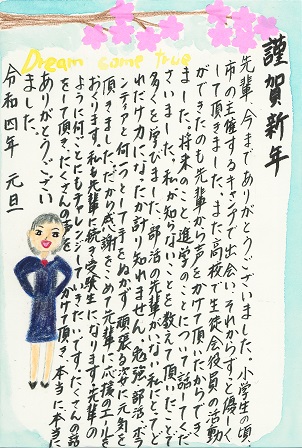 謹賀新年
Dream come true
先輩、今までありがとうございました。小学生の頃
市の主催するキャンプで出会い、それからずっと優しく
して頂きました。また高校で生徒会役員の活動
ができたのも先輩から声をかけて頂いたからでき
ました。将来のこと、進学のことについて話してくだ
さいました。私が知らないことを教えて頂いたことで
多くを学びました。部活の先輩がいない私にとってど
れだけ力になったか計り知れません。勉強、部活、ボラ
ンティアと何一つとして手をぬかず頑張る姿に元気を
頂きました。だから感謝をこめて先輩に応援のエールを
おくります。私も先輩に続き受験生になります。先輩の
ように何ごとにもチャレンジしていきたいです。たくさんの話
をして頂き、たくさんの声をかけて頂き、本当に本当に
ありがとうござい
ました。
令和四年 元旦